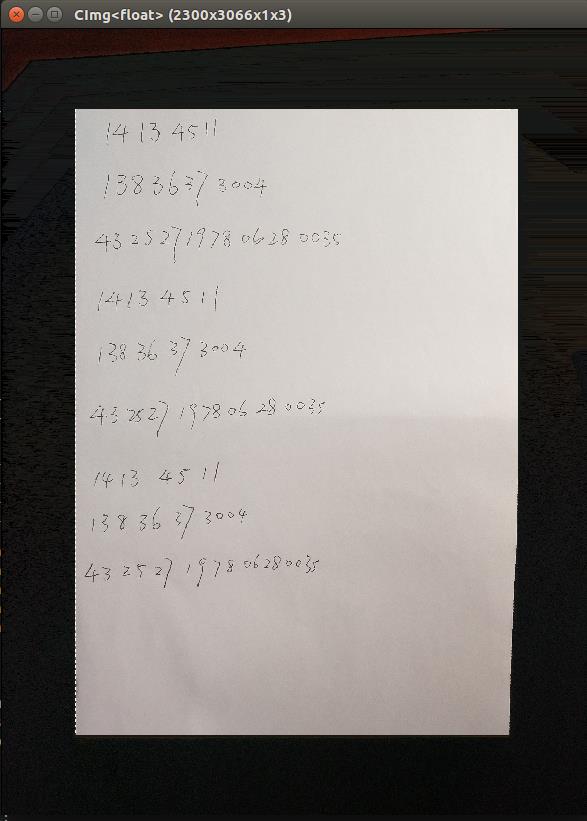 CImg<float> (2300x3066x1x3)
14 13 45 11
138 36 37 3004
43 25 27 1978 06 28 0035
14 13 45 11
138 36 37 3004
43 25 27 1978 06 28 0035
14 13 45 11
138 36 37 3004
43 25 27 1978 06280035